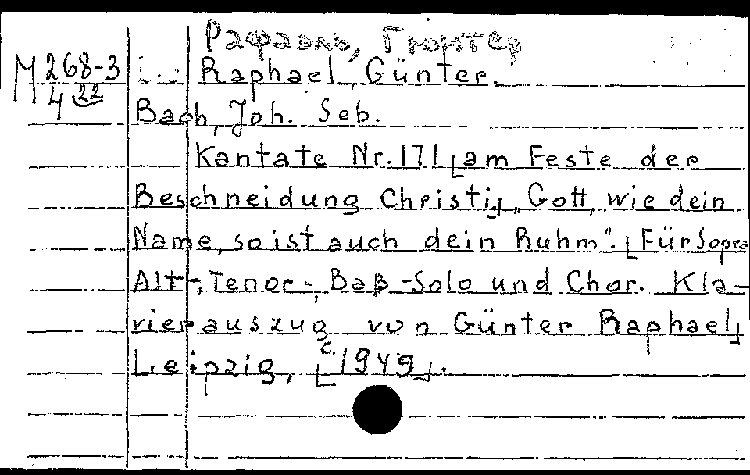 Рафаэль, Гюнтер
М 268-3 Raphael, Günter.
4 22
Bach, Joh. Seb.
Kantate Nr. 171 [am Feste der
Beschneidung Christi] „Gott, wie dein
Name, so ist auch dein Ruhm". [Für Sopra
Alt-, Tenor-, Baß-Solo und Chor. Kla-
vierauszug von Günter Raphael]
Leipzig, [c 1949].